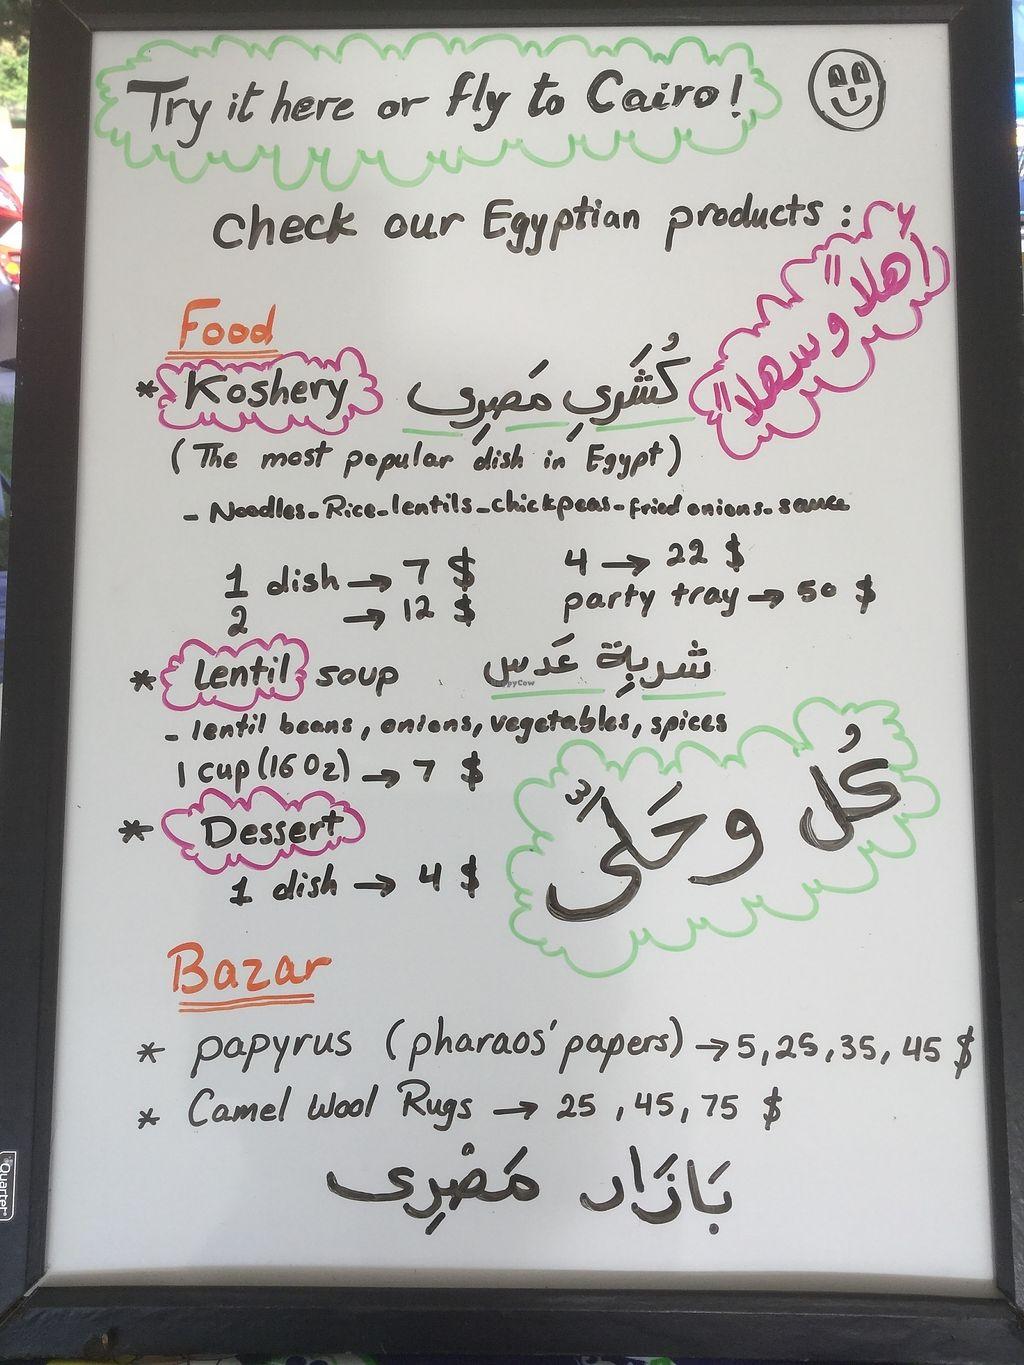 Try it here or fly to Cairo!
check our Egyptian products:
أهلاً وسهلاً
Food
* Koshery كُشَرِي مَصرِى
(The most popular dish in Egypt)
- Noodles-Rice-lentils-chickpeas-fried onions-sauce
1 dish → 7 $ 4 → 22 $
2 → 12 $ party tray → 50 $
* Lentil soup شربِة عَدس
HappyCow
- lentil beans, onions, vegetables, spices
1 cup (16 Oz) → 7 $
كُل وحَلّى
* Dessert
1 dish → 4 $
Bazar
* papyrus (pharaos' papers) → 5, 25, 35, 45 $
* Camel Wool Rugs → 25, 45, 75 $
بَازَار مَصْرِى
Quartet